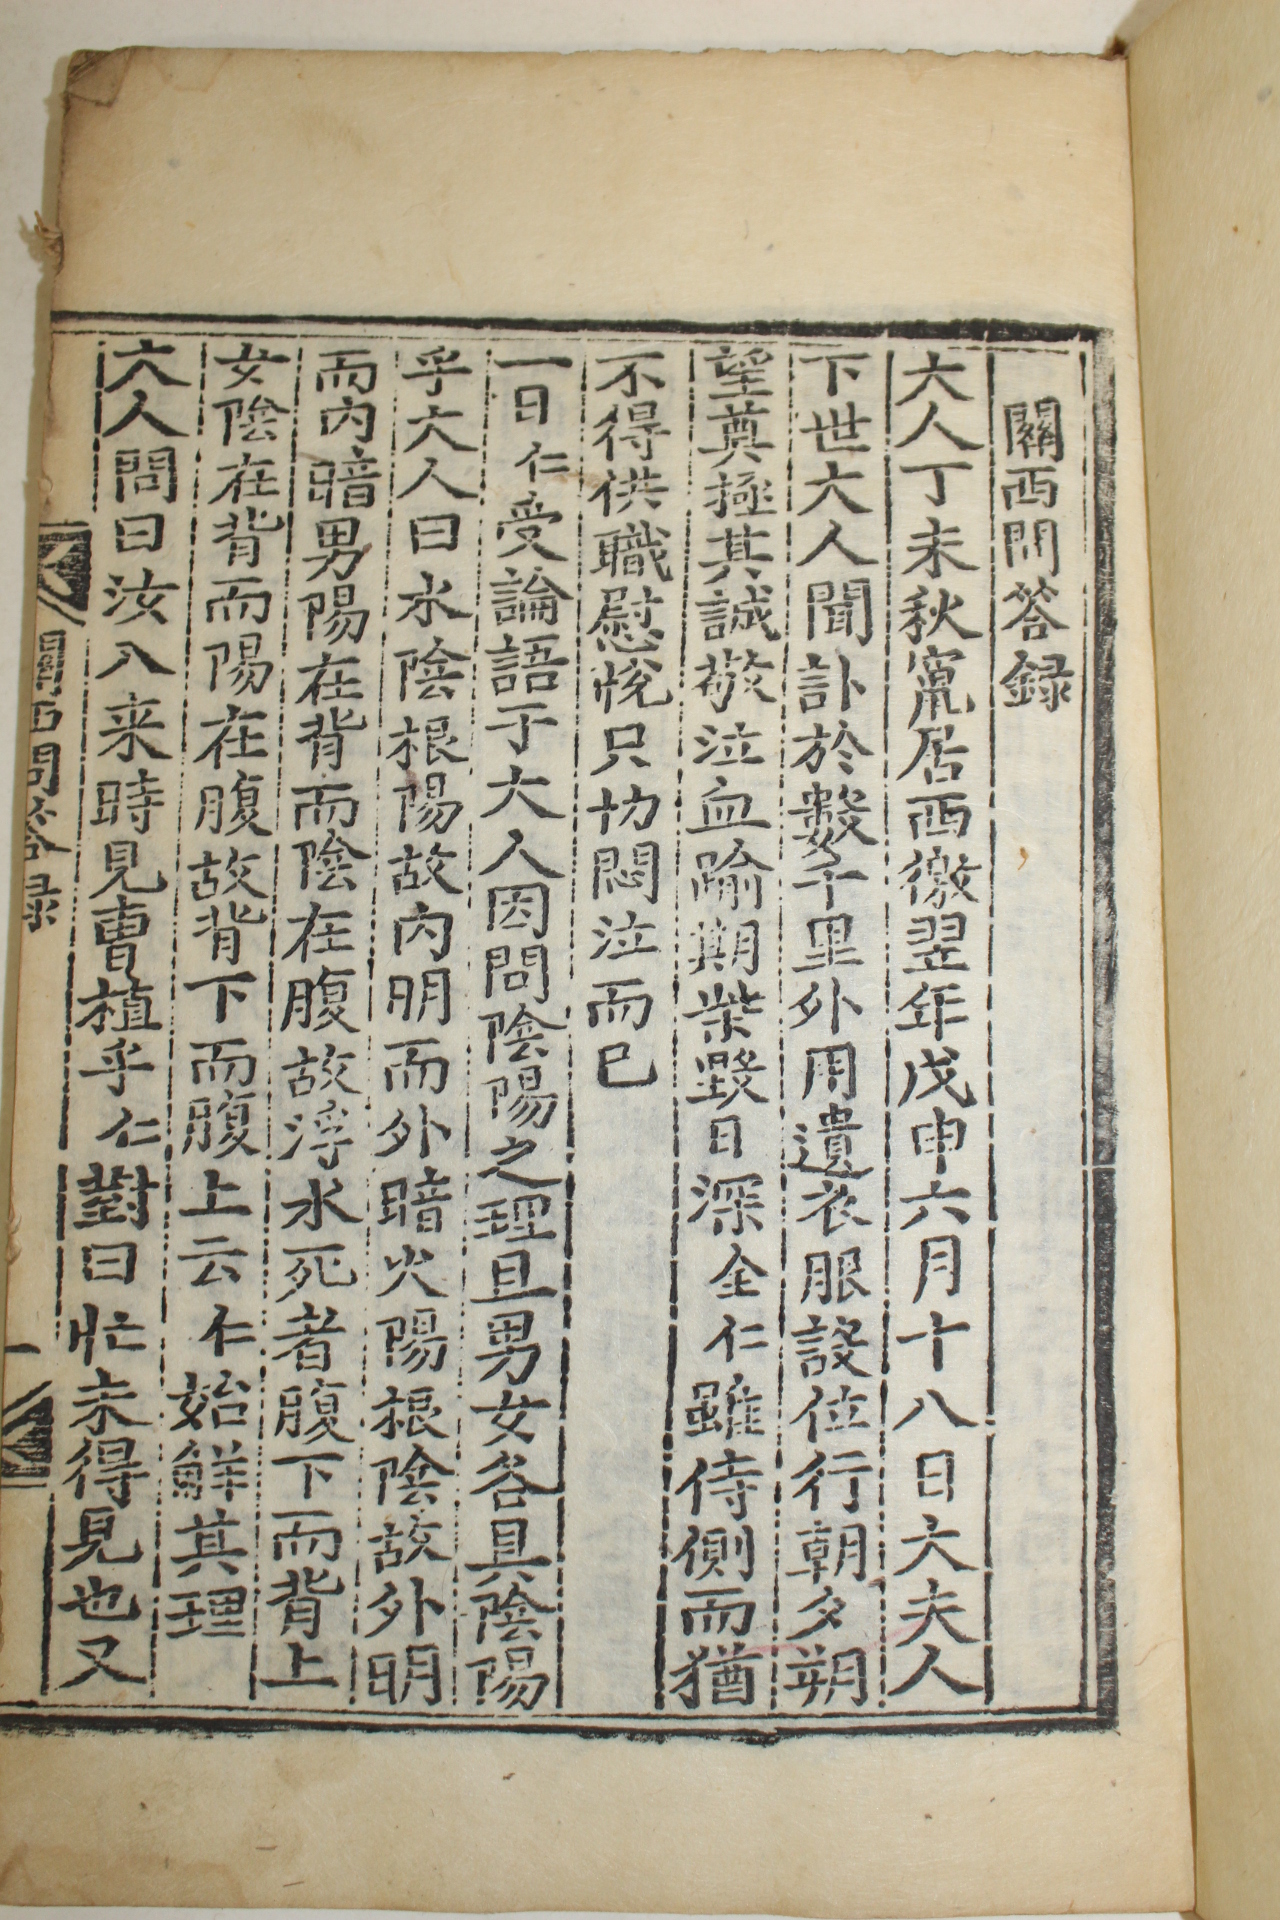 關西問答録
大人丁未秋竄居西徼翌年戊申六月十八日大夫人
下世大人聞訃於數千里外用遺衣服設位行朝夕朔
望奠極其誠敬泣血踰期柴毀日深全仁雖侍側而猶
不得供職慰悅只切悶泣而已
一日仁受論語于大人因問陰陽之理且男女各具陰陽
乎大人曰水陰根陽故內明而外暗火陽根陰故外明
而內暗男陽在背而陰在腹故浮水死者腹下而背上
女陰在背而陽在腹故背下而腹上云仁始鮮其理
大人問曰汝入来時見曺植乎仁對曰忙未得見也又
關西問答录
一